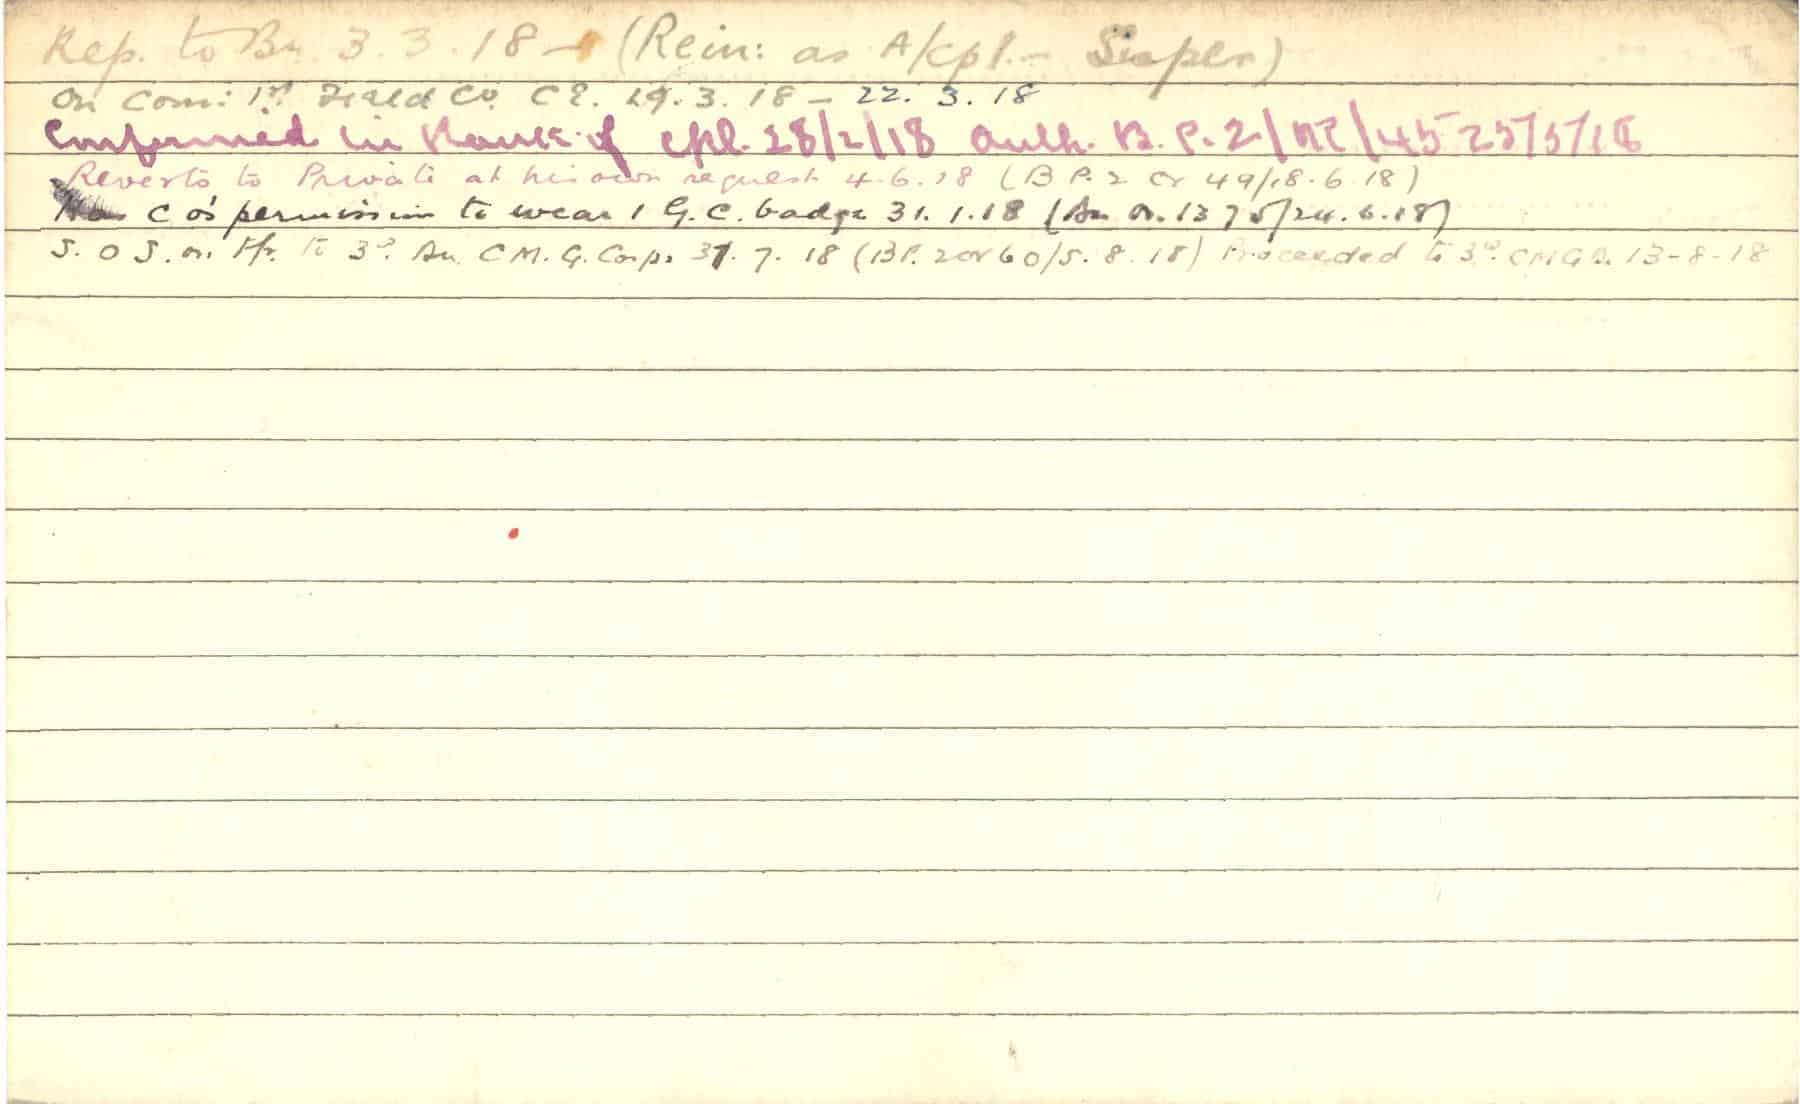 Rep. to Bn. 3.3.18 - (Rein: as A/cpl. - )
On Com: 1st Field Co. C E. 29.3.18 - 22.3.18
Confirmed in Rank of cpl. 28/2/18 Auth. B.P.2/ /45 25/5/18
Reverts to Private at his own request 4.6.18 (B P. 2 Or 49/18.6.18)
Has C O's permission to wear 1 G.C. badge 31.1.18 (Bn Or. 1375/24.6.18)
S.O S. on tfr. to 3rd Bn. C M. G. Corps 31.7.18 (BP. 2 Or 60/5.8.18) Proceeded to 3rd CMGB. 13-8-18